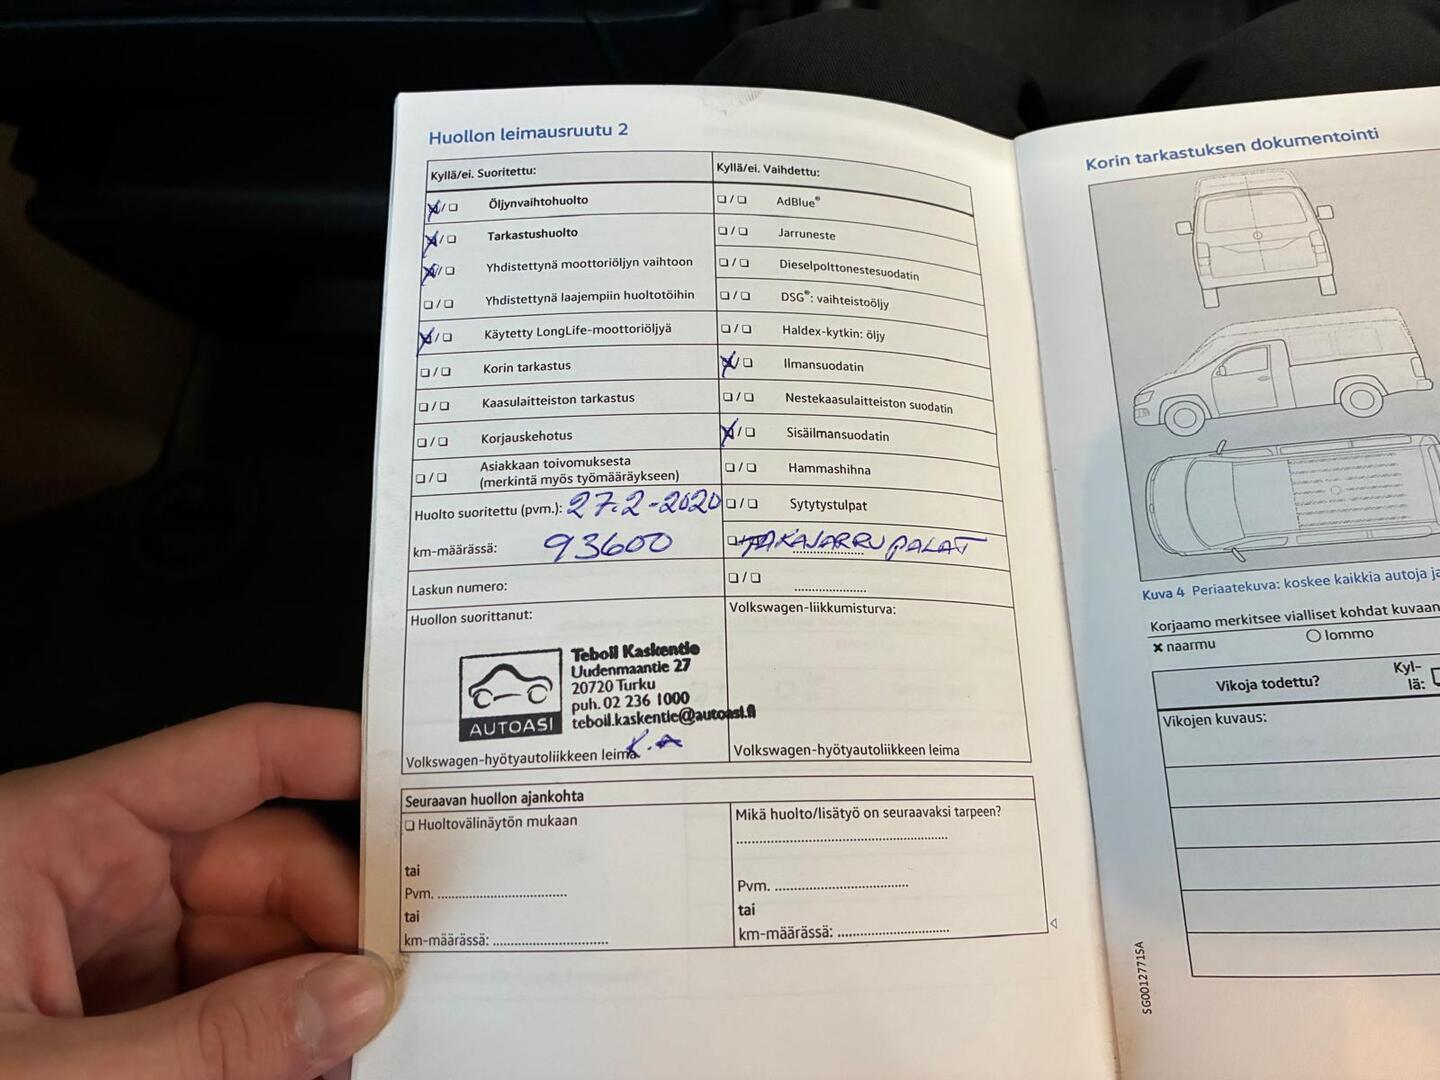 Huollon leimausruutu 2
Kyllä/ei. Suoritettu:
Öljynvaihtohuolto
Tarkastushuolto
Yhdistettynä moottoriöljyn vaihtoon
Yhdistettynä laajempiin huoltotöihin
Käytetty LongLife-moottoriöljyä
Korin tarkastus
Kaasulaitteiston tarkastus
Korjauskehotus
Asiakkaan toivomuksesta
(merkintä myös työmääräykseen)
Huolto suoritettu (pvm.): 27.2-2020
km-määrässä: 93600
Laskun numero:
Huollon suorittanut:
Teboil Kaskentie
Uudenmaantie 27
20720 Turku
puh. 02 236 1000
teboil.kaskentie@autoasi.fi
AUTOASI
Volkswagen-hyötyautoliikkeen leima K.A
Kyllä/ei. Vaihdettu:
AdBlue®
Jarruneste
Dieselpolttonestesuodatin
DSG®: vaihteistoöljy
Haldex-kytkin: öljy
Ilmansuodatin
Nestekaasulaitteiston suodatin
Sisäilmansuodatin
Hammashihna
Sytytystulpat
TAKAJARRUPALAT
Volkswagen-liikkumisturva:
Volkswagen-hyötyautoliikkeen leima
Seuraavan huollon ajankohta
Huoltovälinäytön mukaan
tai
Pvm.
tai
km-määrässä:
Mikä huolto/lisätyö on seuraavaksi tarpeen?
Pvm.
tai
km-määrässä:
Korin tarkastuksen dokumentointi
Kuva 4 Periaatekuva: koskee kaikkia autoja
Korjaamo merkitsee vialliset kohdat kuvaan
naarmu
lommo
Vikoja todettu?
Kyl-
lä:
Vikojen kuvaus:
5G0012771SA